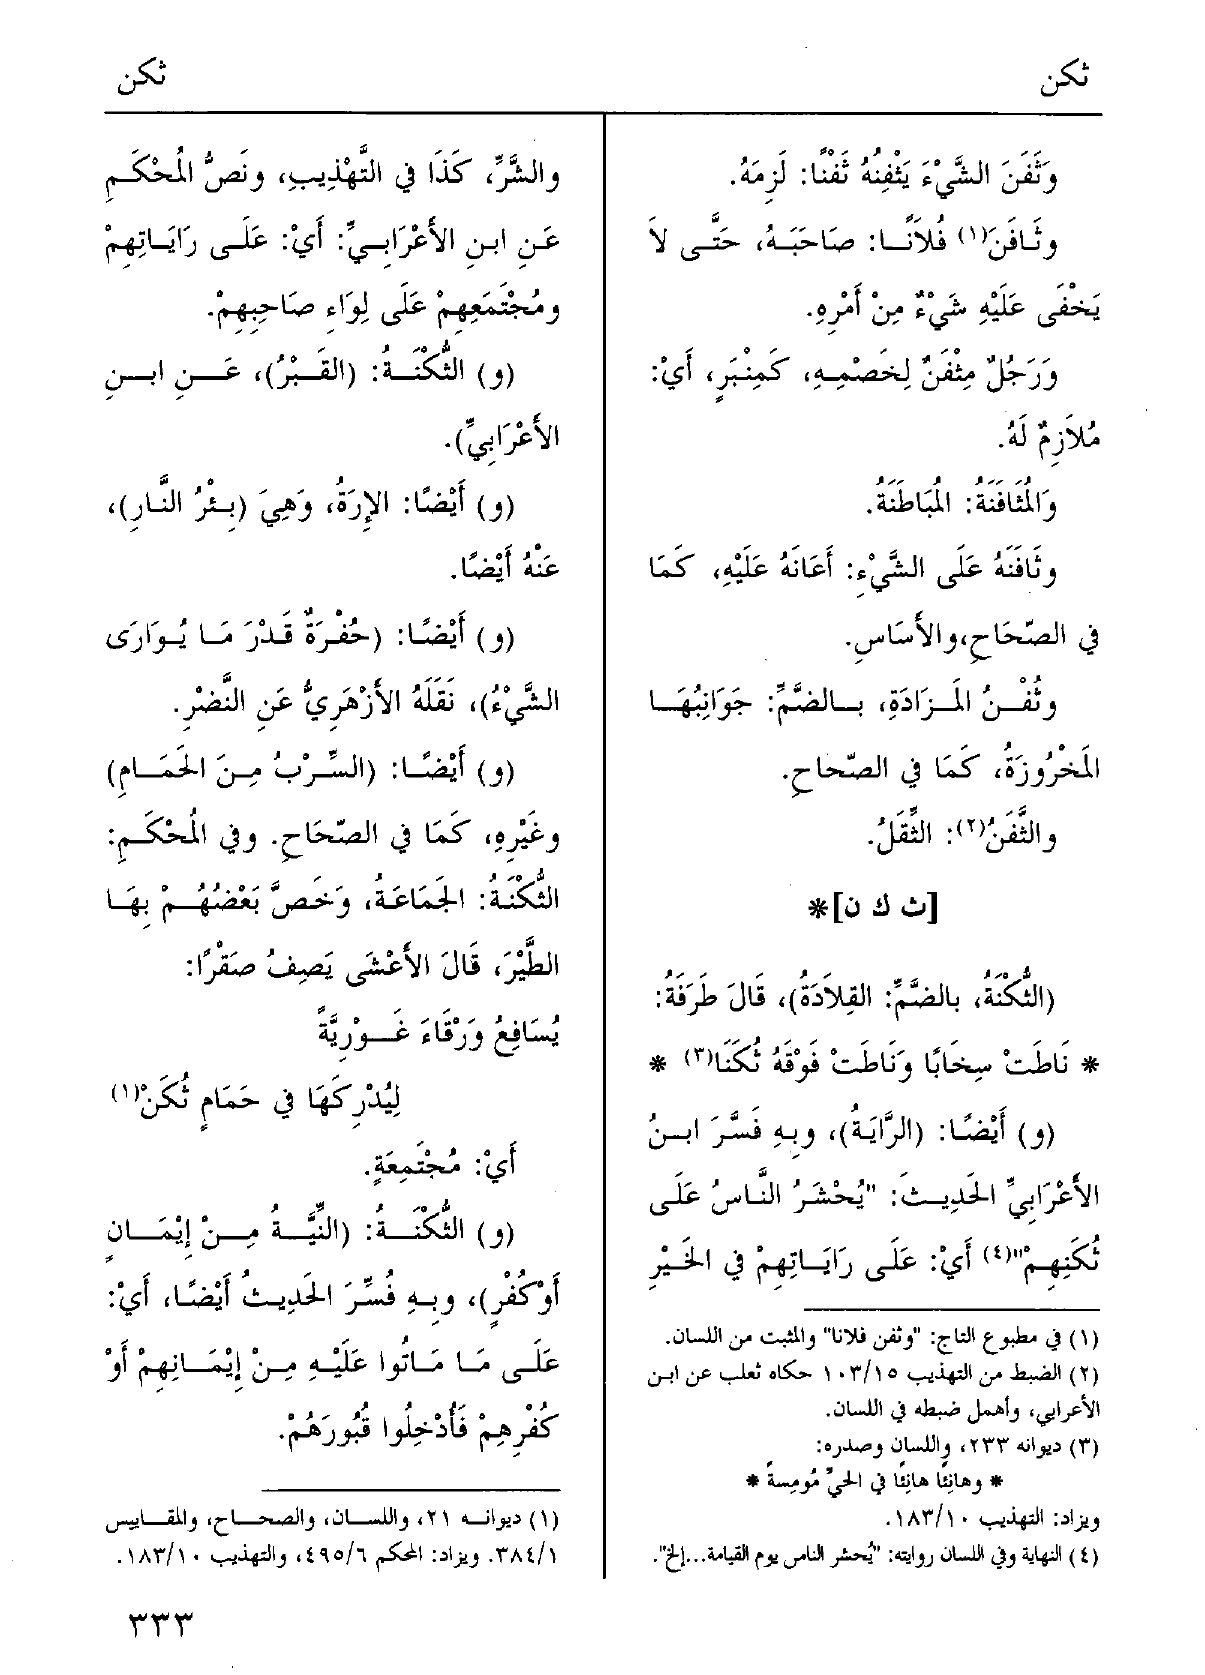 ثكن
ثكن
وَثَفَنَ الشَّيْءَ يَثْفِنُهُ ثَفْنًا: لَزِمَهُ.
وثَـافَنَ(١) فُلاَنًـا: صَاحَبَهُ، حَتَّـى لاَ
يَخْفَى عَلَيْهِ شَيْءٌ مِنْ أَمْرِهِ.
وَرَجُلٌ مِثْفَنٌ لِخَصْمِـهِ، كَمِنْبَرٍ، أَيْ:
مُلاَزِمٌ لَهُ.
وَالمُثَافَنَةُ: المُبَاطَنَةُ.
وثَافَنَهُ عَلَى الشَّيْءِ: أَعَانَهُ عَلَيْهِ، كَمَا
في الصِّحَاحِ،والأَسَاسِ.
وثُفْـنُ المَـزَادَةِ، بـالضَّمِّ: جَوَانِبُهَـا
المَخْرُوزَةُ، كَمَا في الصِّحاحِ.
والثَّفَنُ(٢): الثِّقَلُ.
[ث ك ن]*
(الثُّكْنَةُ، بالضَّمِّ: القِلاَدَةُ)، قَالَ طَرَفَةُ:
* نَاطَتْ سِخَابًا وَنَاطَتْ فَوْقَهُ ثُكَنَا(٣) *
(و) أَيْضًا: (الرَّايَةُ)، وبِهِ فَسَّرَ ابـنُ
الأَعْرَابِيِّ الحَدِيـثَ: "يُحْشَرُ النَّاسُ عَلَى
ثُكَنِهِـمْ"(٤) أَيْ: عَلَى رَايَـاتِهِمْ في الخَيْرِ
(١) في مطبوع التاج: "وثفن فلانا" والمثبت من اللسان.
(٢) الضبط من التهذيب ١٠٣/١٥ حكاه ثعلب عن ابـن
الأعرابي، وأهمل ضبطه في اللسان.
(٣) ديوانه ٢٣٣، واللسان وصدره:
* وهانِئًا هانِئًا في الحَيِّ مُومِسةً *
ويزاد: التهذيب ١٨٣/١٠.
(٤) النهاية وفي اللسان روايته: "يُحشر الناس يوم القيامة...إلخ".
والشَّرِّ، كَذَا في التَّهْذِيبِ، ونَصُّ المُحْكَـمِ
عَـنِ ابـنِ الأَعْرَابِـيِّ: أَيْ: عَلَـى رَايَـاتِهِمْ
ومُجْتَمَعِهِمْ عَلَى لِوَاءِ صَاحِبِهِمْ.
(و) الثُّكْنَـةُ: (القَـبْرُ)، عَـنِ ابـنِ
الأَعْرَابِيِّ).
(و) أَيْضًا: الإِرَةُ، وَهِيَ (بِـئْرُ النَّـارِ)،
عَنْهُ أَيْضًا.
(و) أَيْضًـا: (حُفْـرَةٌ قَـدْرَ مَـا يُـوَارَى
الشَّيْءُ)، نَقَلَهُ الأَزْهَرِيُّ عَنِ النَّضْرِ.
(و) أَيْضًـا: (السِّـرْبُ مِـنَ الحَمَـامِ)
وغَيْرِهِ، كَمَا في الصِّحَاحِ. وفي المُحْكَـمِ:
الثُّكْنَةُ: الجَمَاعَةُ، وَخَـصَّ بَعْضُهُـمْ بِهَـا
الطَّيْرَ، قَالَ الأَعْشَى يَصِفُ صَقْرًا:
يُسَافِعُ وَرْقَاءَ غَـوْرِيَّةً
لِيُدْرِكَهَا في حَمَامٍ ثُكَنْ(١)
أَيْ: مُجْتَمِعَةٍ.
(و) الثُّكْنَـةُ: (النِّيَّـةُ مِـنْ إِيْمَـانٍ
أَوْكُفْرٍ)، وبِـهِ فُسِّرَ الحَدِيـثُ أَيْضًـا، أَيْ:
عَلَـى مَـا مَـاتُوا عَلَيْـهِ مِـنْ إِيْمَـانِهِمْ أَوْ
كُفْرِهِمْ فَأُدْخِلُوا قُبُورَهُمْ.
(١) ديوانـه ٢١، واللسـان، والصحـاح، والمقـاييس
٣٨٤/١. ويزاد: المحكم ٤٩٥/٦، والتهذيب ١٨٣/١٠.
٣٣٣